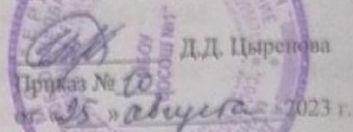 Д.Д. Цыренова
Приказ № 10
от «25» августа 2023 г.